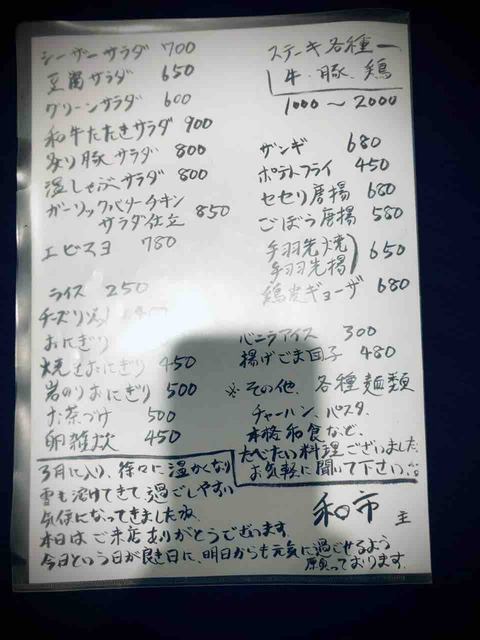 シーザーサラダ 700
豆腐サラダ 650
グリーンサラダ 600
和牛たたきサラダ 900
炙り豚サラダ 800
温しゃぶサラダ 800
ガーリックバターチキン
サラダ仕立 850
エビマヨ 780
ライス 250
チーズリゾット
おにぎり
焼きおにぎり 450
岩のりおにぎり 500
お茶づけ 500
卵雑炊 450
ステーキ各種
牛、豚、鶏
1000～2000
ザンギ 680
ポテトフライ 450
セセリ唐揚 680
ごぼう唐揚 580
手羽先焼
手羽先揚 650
鶏皮ギョーザ 680
バニラアイス 300
揚げごま団子 480
※その他、各種麺類
チャーハン、パスタ、
本格和食など、
たべたい料理ございました
お気軽に聞いて下さい。
3月に入り、徐々に温かくなり
雪も溶けてきて過ごしやすい
気候になってきましたね。
本日はご来店ありがとうございます。
今日という日が良き日に、明日からも元気に過ごせるよう
願っております。
和市 主